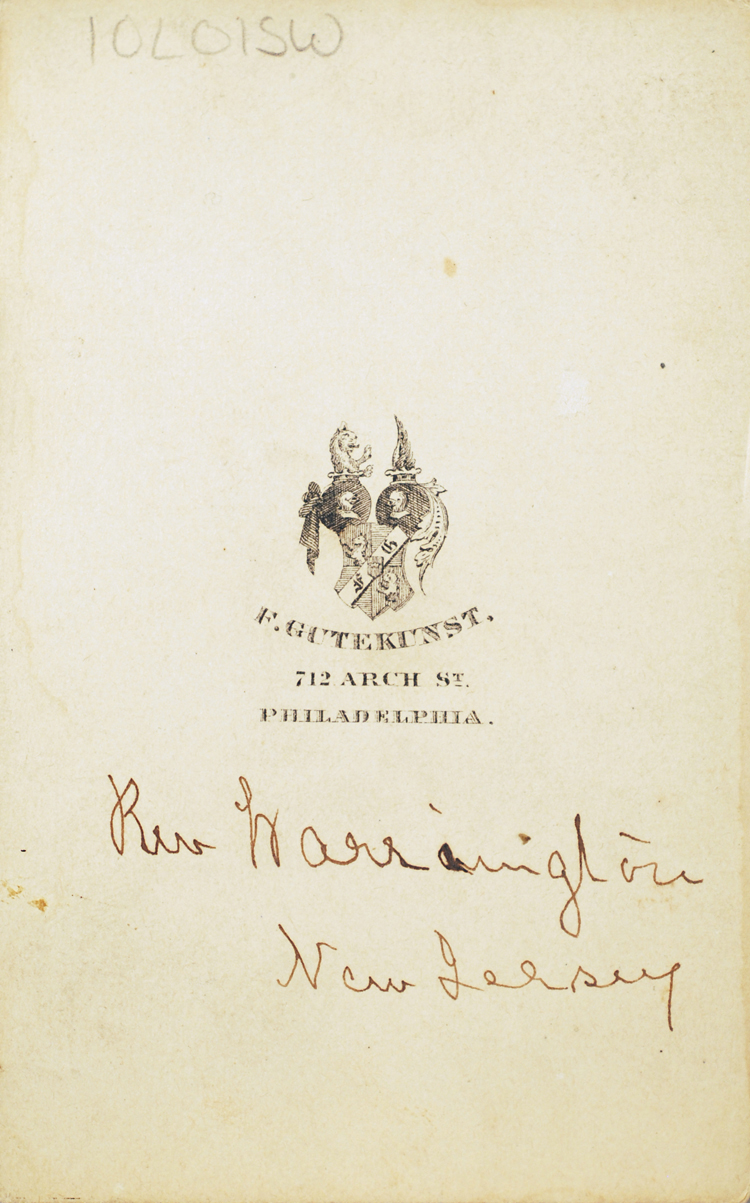 10L01SW
F G
F. GUTEKUNST.
712 ARCH ST.
PHILADELPHIA.
Rev Warrington
New Jersey